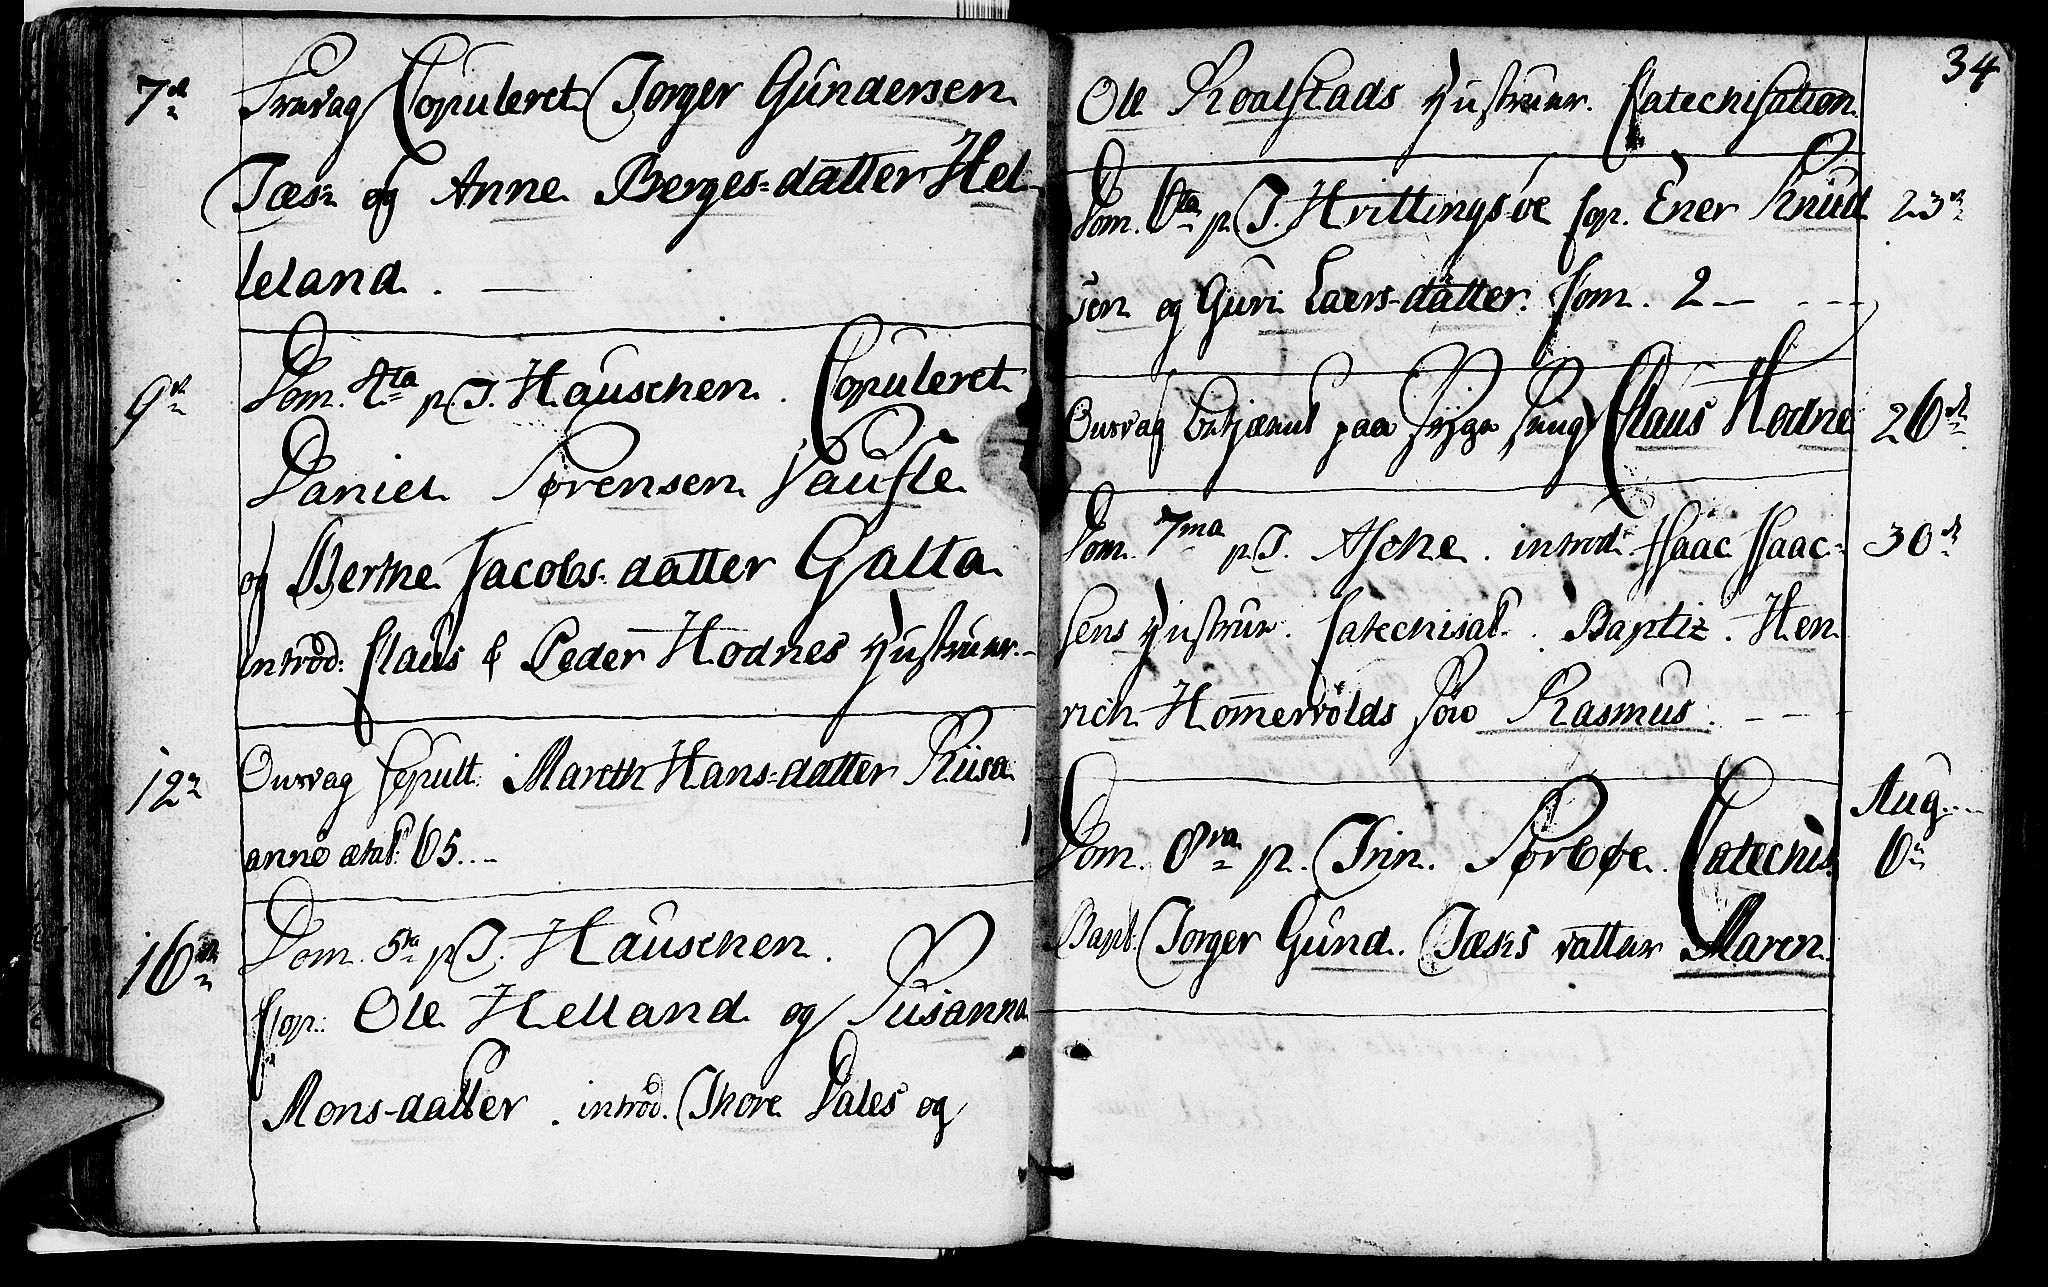 7de Fredag Copuleret Torger Gundersen
Tæs: og Anne Berges=datter Hel
leland.
9de Dom. 4ta p. T. Hauschen. Copuleret
Daniel Sørensen Vaufle
og Berthe Jacobs=datter Galta
introd: Claus & Peder Hodnes Hustruer.
12n Onsdag sepult: Mareth Hans=datter Riisa
anno ætat: 65.
16de Dom. 5ta p. T. Hauschen.
Cop: Ole Helland og Susanna
Mons-datter. introd. Thore Dales og
34
Ole Roalstads Hustruer. Catechisation.
Dom. 6ta p. T. Hvittingsöe Cop. Ener Knud 23de
sen og Guri Laers-datter. Com. 2
Onsdag betjænt paa Syge Seng Claus Hodne 26de
Dom. 7ma p. T. Aske. introd. Isaac Isaac= 30de
sens Hustrue. Catechisat. Baptiz. Hen
rich Homervolds Søn Rasmus.
Aug.
Dom. 8va p. Trin. Sørbøe. Catechis. 6n
Bapt. Torger Gund. Tæs's datter Maren.